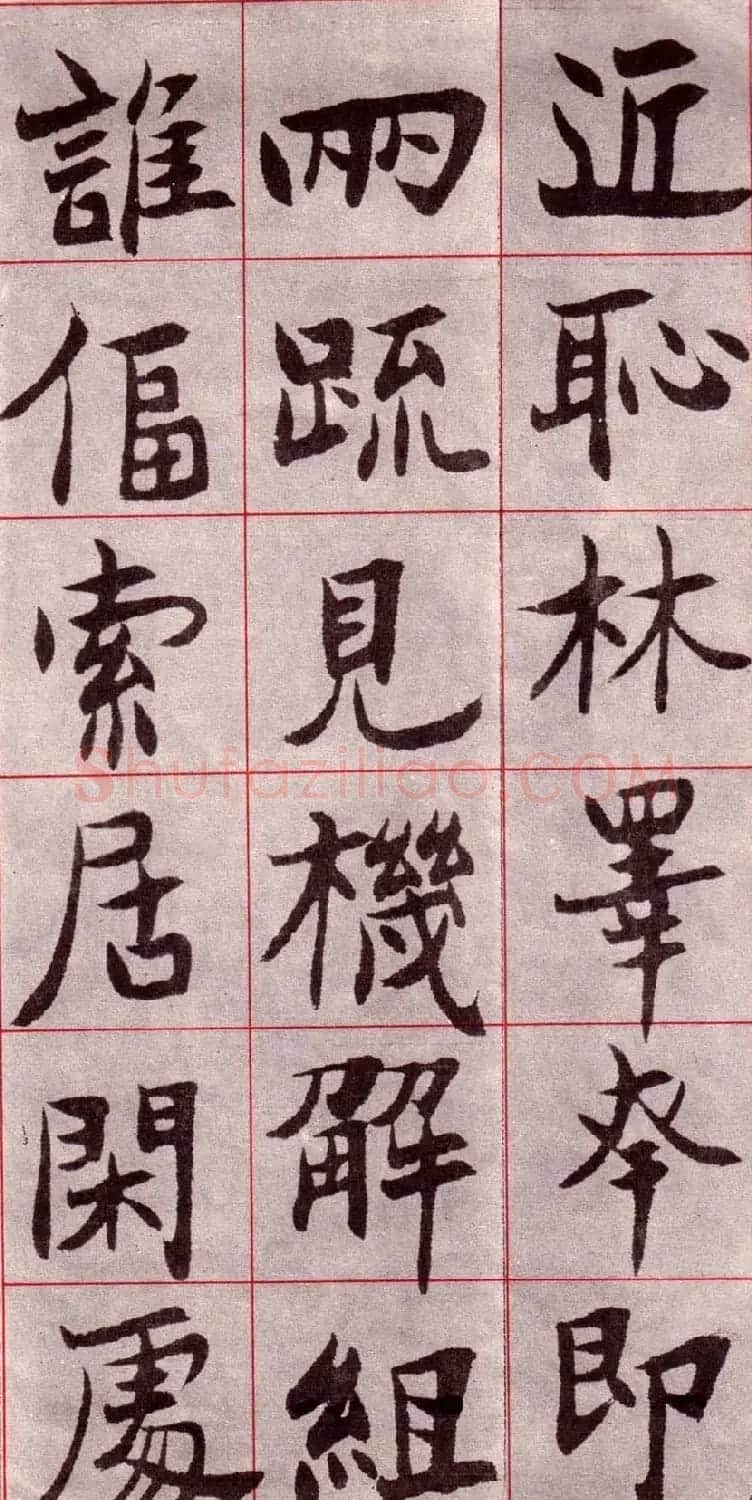 近恥林睪幸即
兩疏見機解組
誰偪索居閑處
Shufaziliao.COM